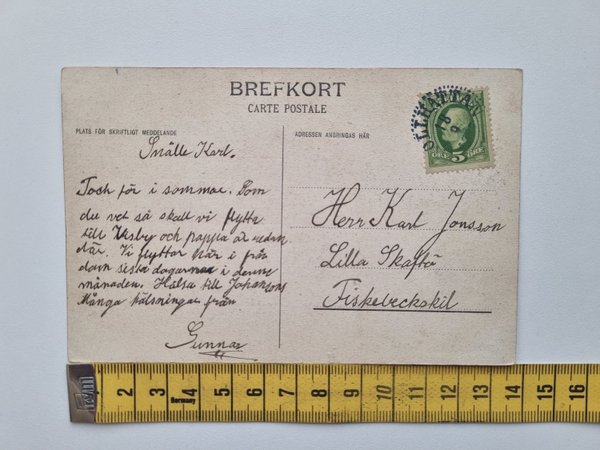 BREFKORT
CARTE POSTALE
PLATS FÖR SKRIFTLIGT MEDDELANDE
ADRESSEN ANGIFVAS HÄR
OLLHÄTTAN
ÖRE 5 ÖRE
Snälle Karl.
Tack för i sommar. Som
du vet så skall vi flytta
till och pappa är redan
där. Vi flyttar här i från
dom sista dagarna i denne
månaden. Hälsa till Johansons
Många hälsningar från
Gunnar
Herr Karl Jonsson
Lilla Skaftö
Fiskebeckskil
1 2 3 4 5 6 7 8 9 10 11 12 13 14 15 16
Germany